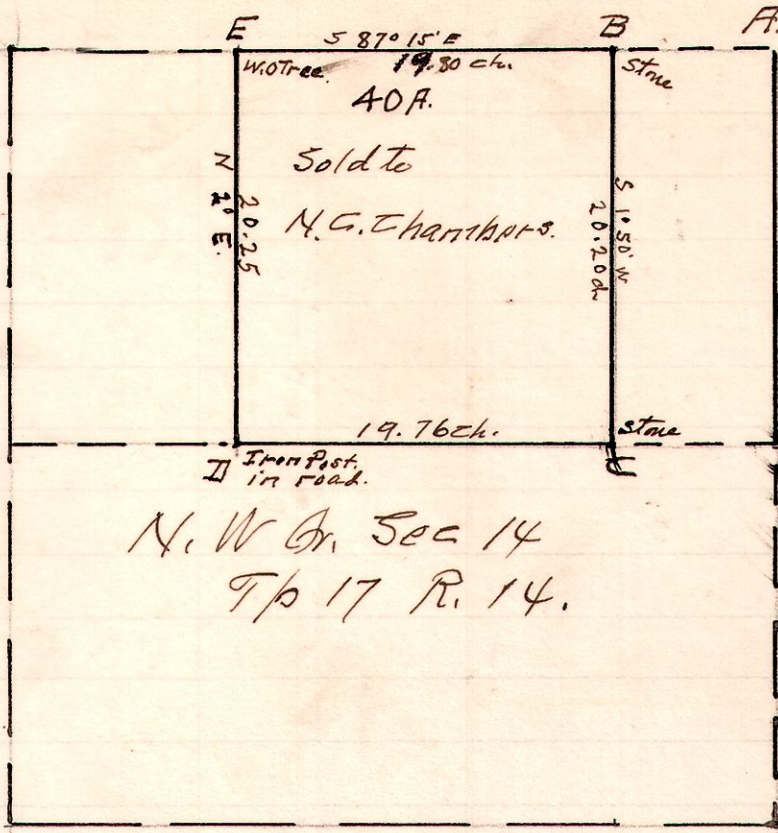 E S 87° 15' E B A.
W.O Tree. 19.80 ch. Stone
40A.
Sold to
N.C. Chambers.
N 1° E.
20.25
S 1° 50' W
20.20ch
19.76ch. Stone
D Iron Post.
in road.
N. W Qr. Sec 14
Tp 17 R. 14.